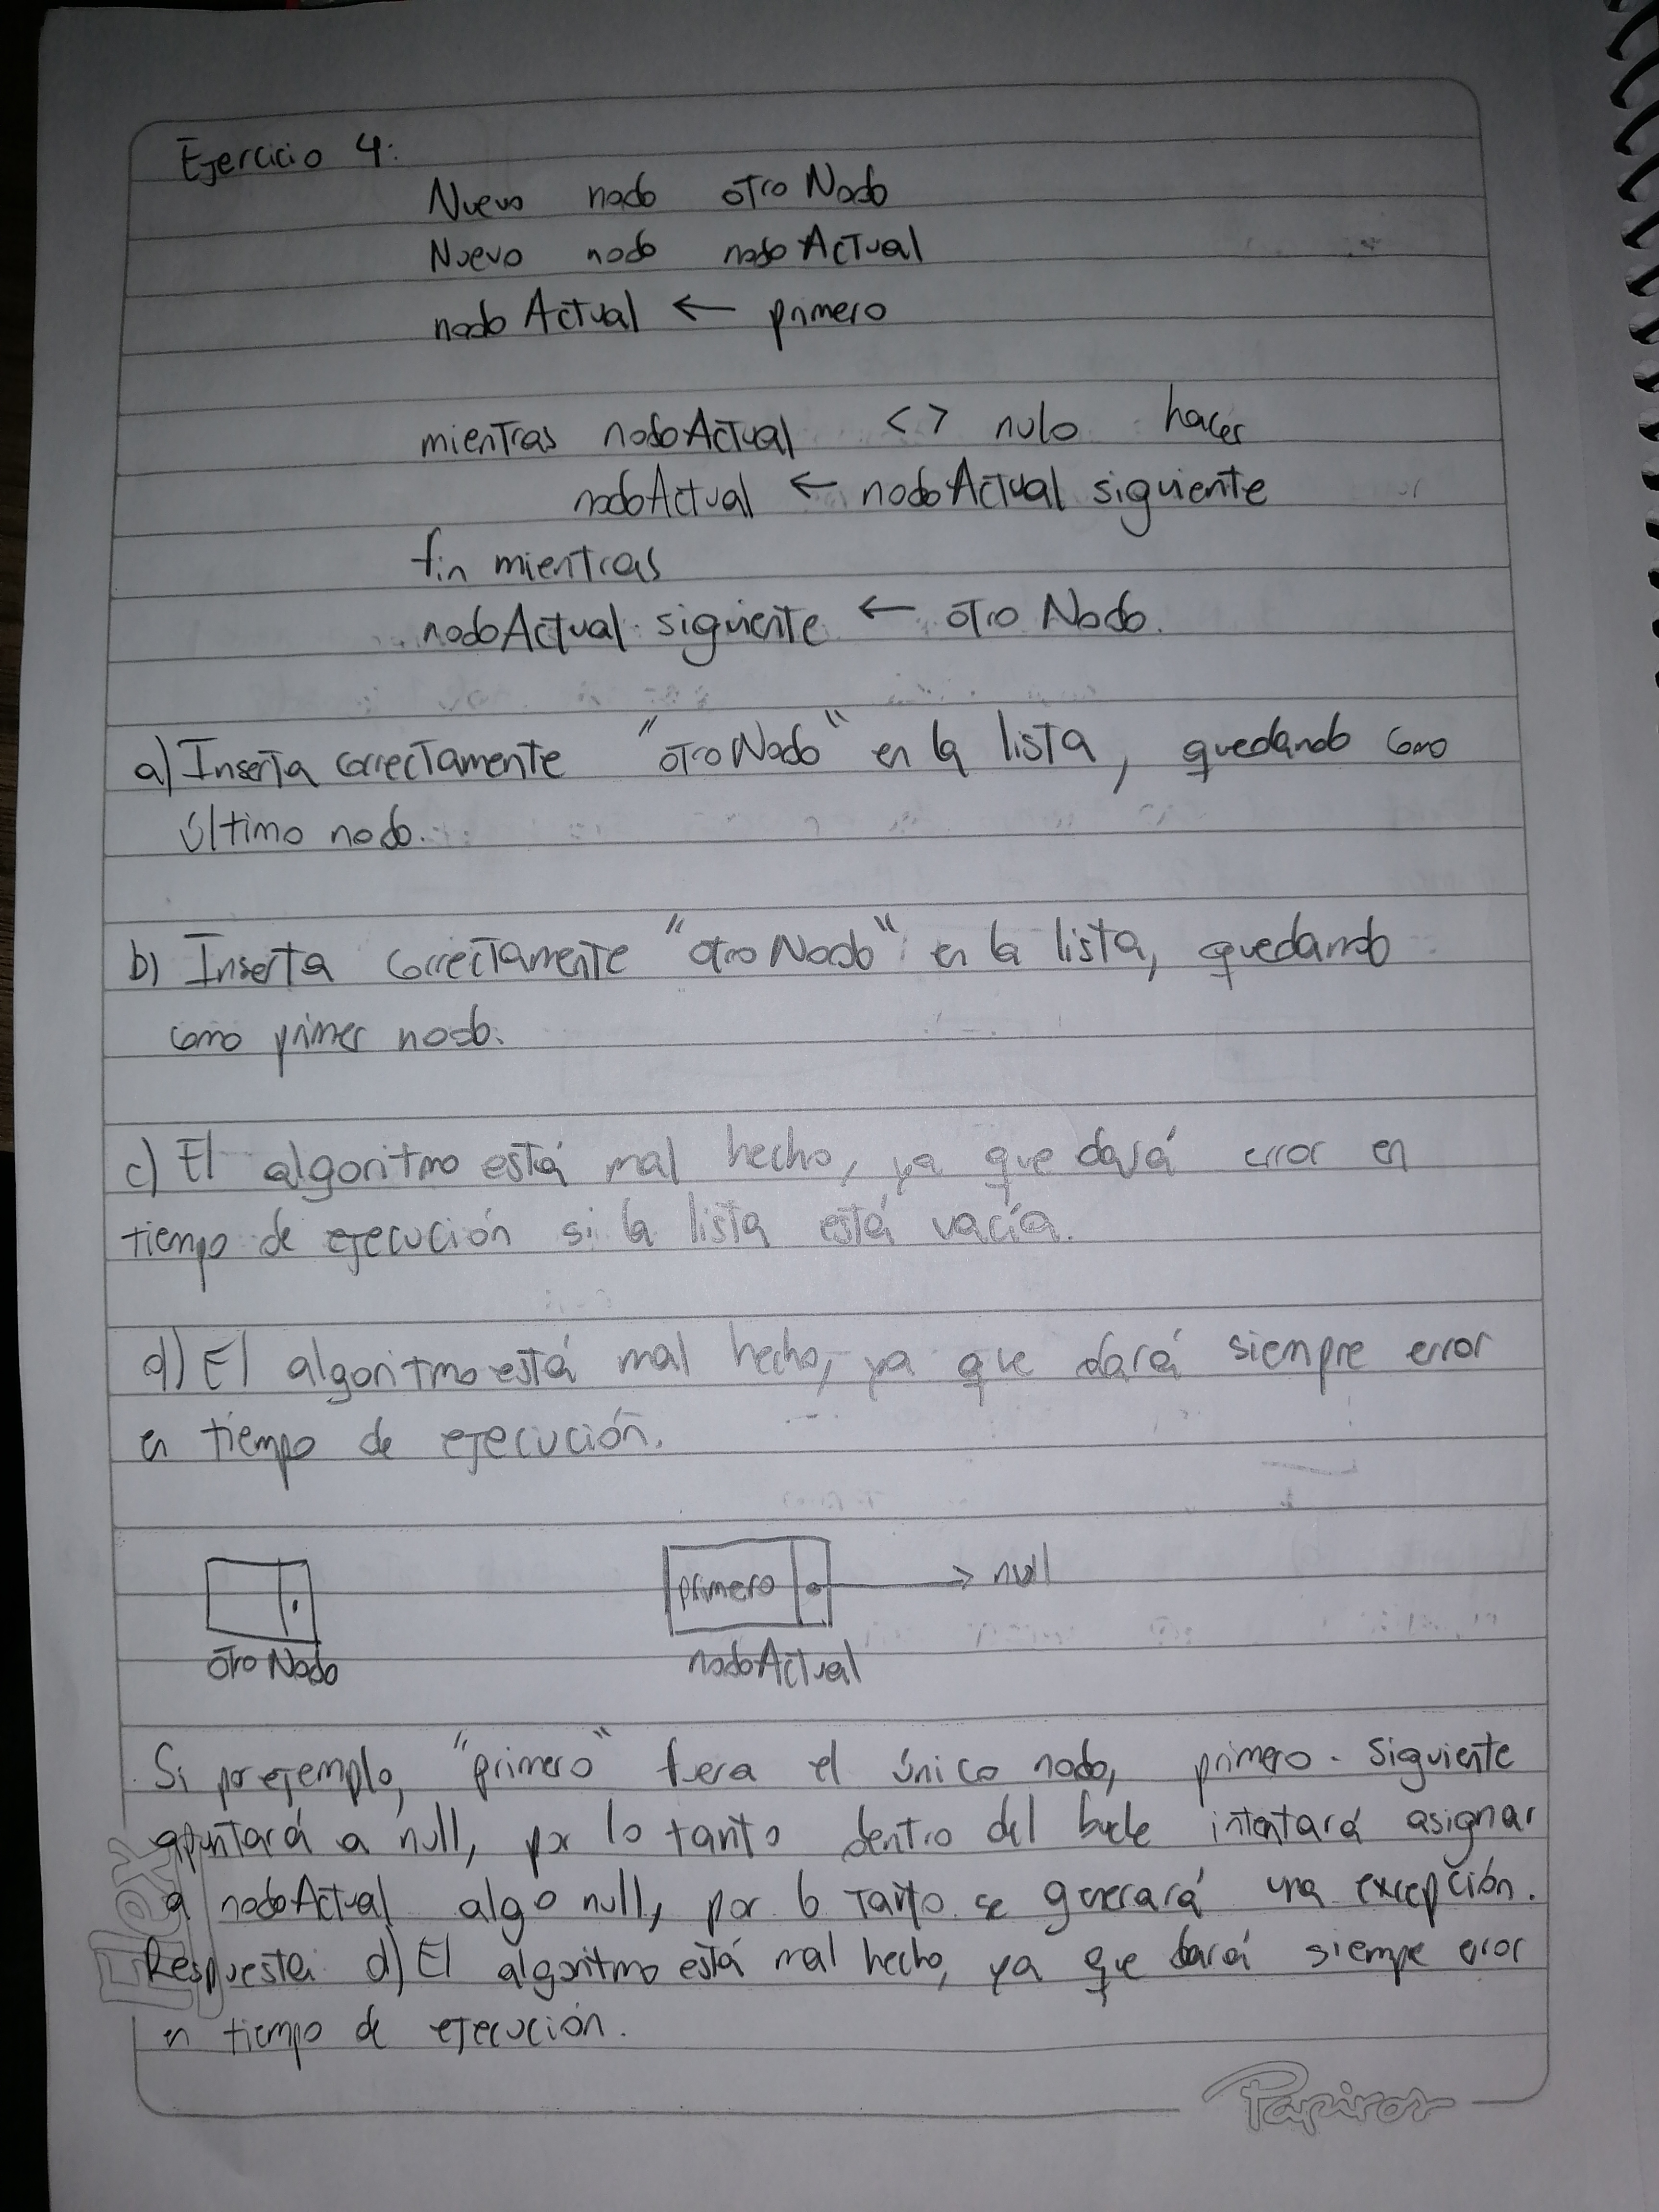 Ejercicio 4:
Nuevo nodo otroNodo
Nuevo nodo nodoActual
nodoActual ← primero
mientras nodoActual <> nulo hacer
nodoActual ← nodoActual siguiente
fin mientras
nodoActual. siguiente ← otroNodo.
a) Inserta correctamente "otroNodo" en la lista, quedando como
último nodo.
b) Inserta correctamente "otroNodo" en la lista, quedando
como primer nodo.
c) El algoritmo está mal hecho, ya que dará error en
tiempo de ejecución si la lista está vacía.
d) El algoritmo está mal hecho, ya que dará siempre error
en tiempo de ejecución.
primero → null
otroNodo nodoActual
Si por ejemplo, "primero" fuera el único nodo, primero. Siguiente
apuntará a null, por lo tanto dentro del bucle intentará asignar
a nodoActual algo null, por lo tanto se generará una excepción.
Respuesta: d) El algoritmo está mal hecho, ya que dará siempre error
en tiempo de ejecución.
Flex
Papiros